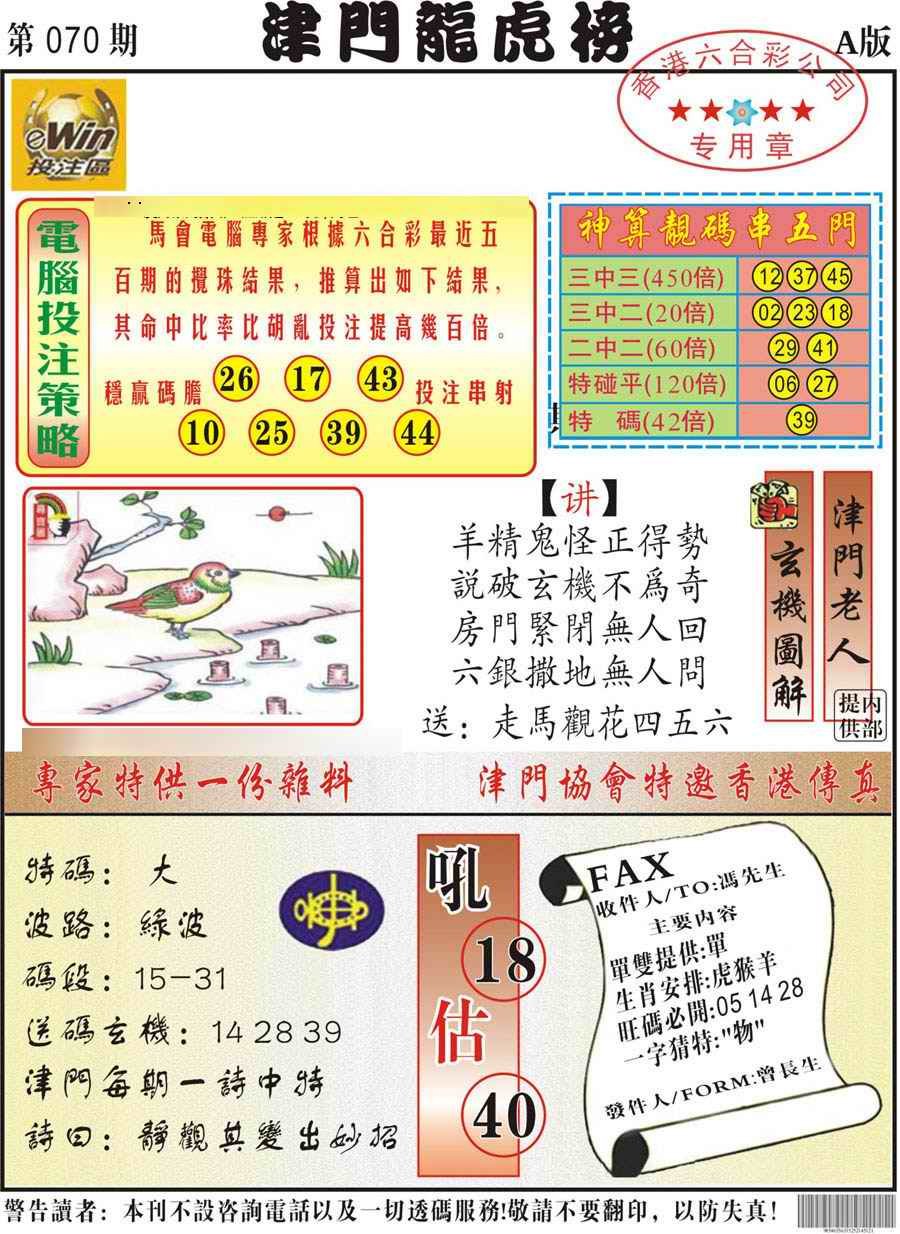 第 070 期
津門龍虎榜
A版
香港六合彩公司
专用章
eWin
投注區
電腦投注策略
馬會電腦專家根據六合彩最近五
百期的攪珠結果，推算出如下結果，
其命中比率比胡亂投注提高幾百倍。
穩贏碼膽 26 17 43 投注串射
10 25 39 44
神算靚碼串五門
三中三(450倍) 12 37 45
三中二(20倍) 02 23 18
二中二(60倍) 29 41
特碰平(120倍) 06 27
特 碼(42倍) 39
【讲】
羊精鬼怪正得勢
説破玄機不爲奇
房門緊閉無人回
六銀撒地無人問
送：走馬觀花四五六
玄機圖解
津門老人
内部提供
專家特供一份雜料
津門協會特邀香港傳真
特碼： 大
波路： 綠波
碼段： 15-31
送碼玄機：14 28 39
津門每期一詩中特
詩曰：靜觀其變出妙招
吼
18
估
40
FAX
收件人/TO:馮先生
主要内容
單雙提供:單
生肖安排:虎猴羊
旺碼必開:05 14 28
一字猜特:"物"
發件人/FORM:曾長生
警告讀者：本刊不設咨詢電話以及一切透碼服務!敬請不要翻印，以防失真!